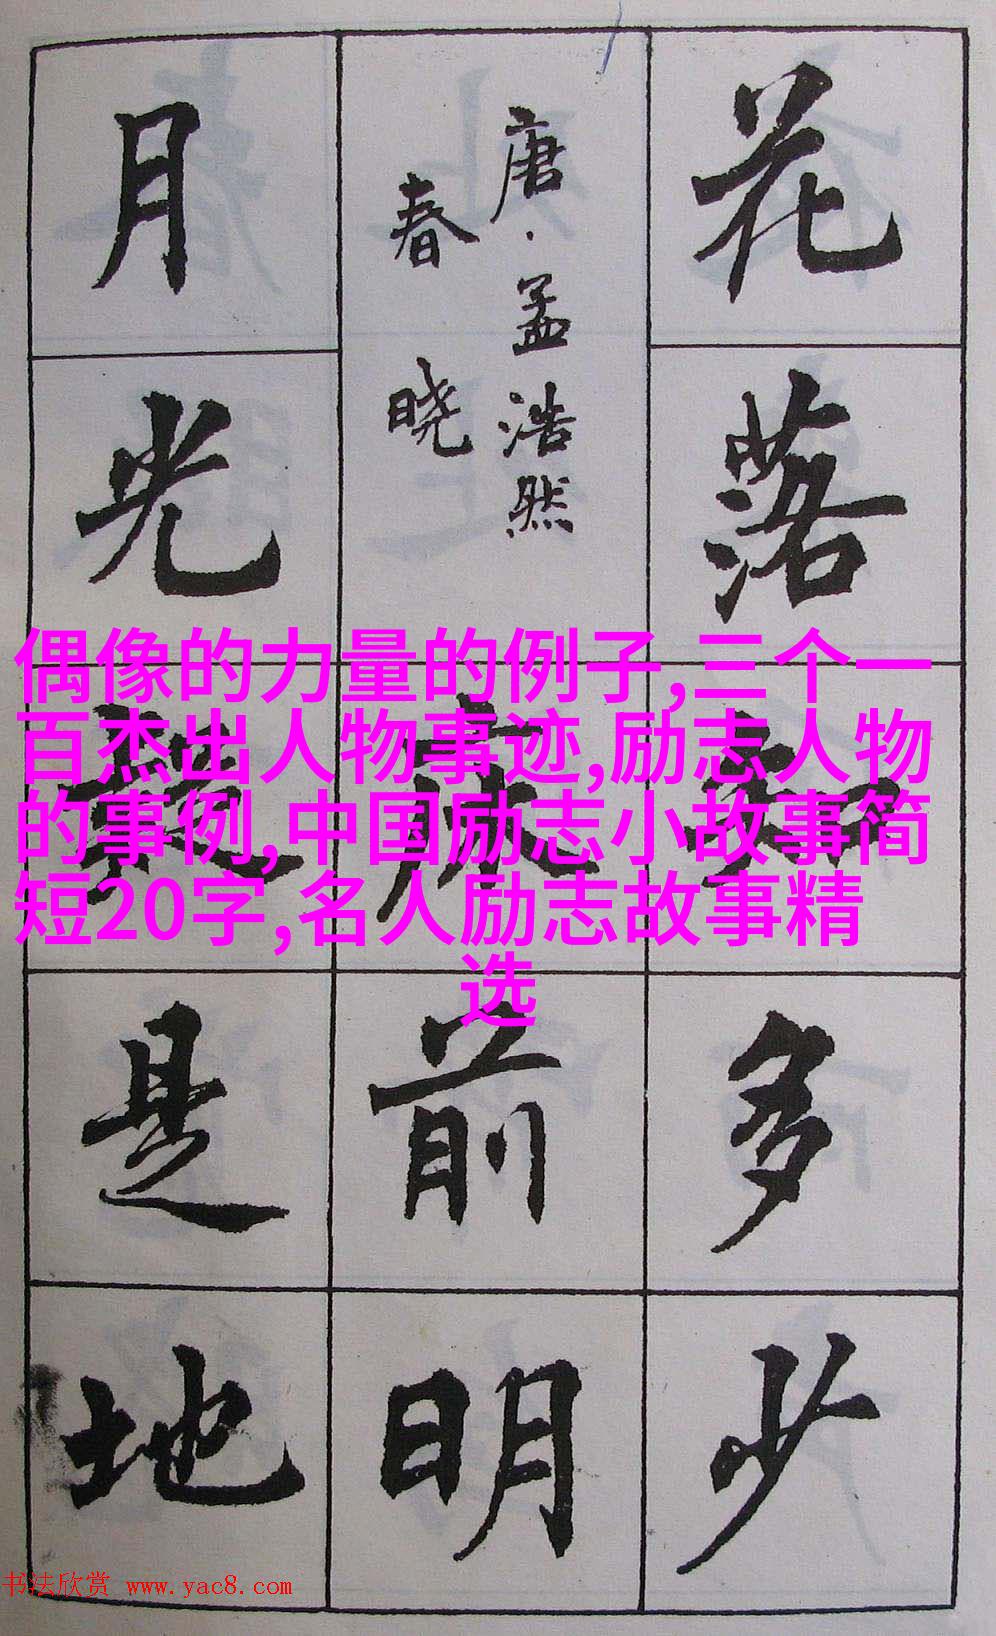 花落知多少
唐·孟浩然
春晓
床前明
月光疑是地
偶像的力量的例子,三个一
百杰出人物事迹,励志人物
的事例,中国励志小故事简
短20字,名人励志故事精
选
书法欣赏 www.yac8.com